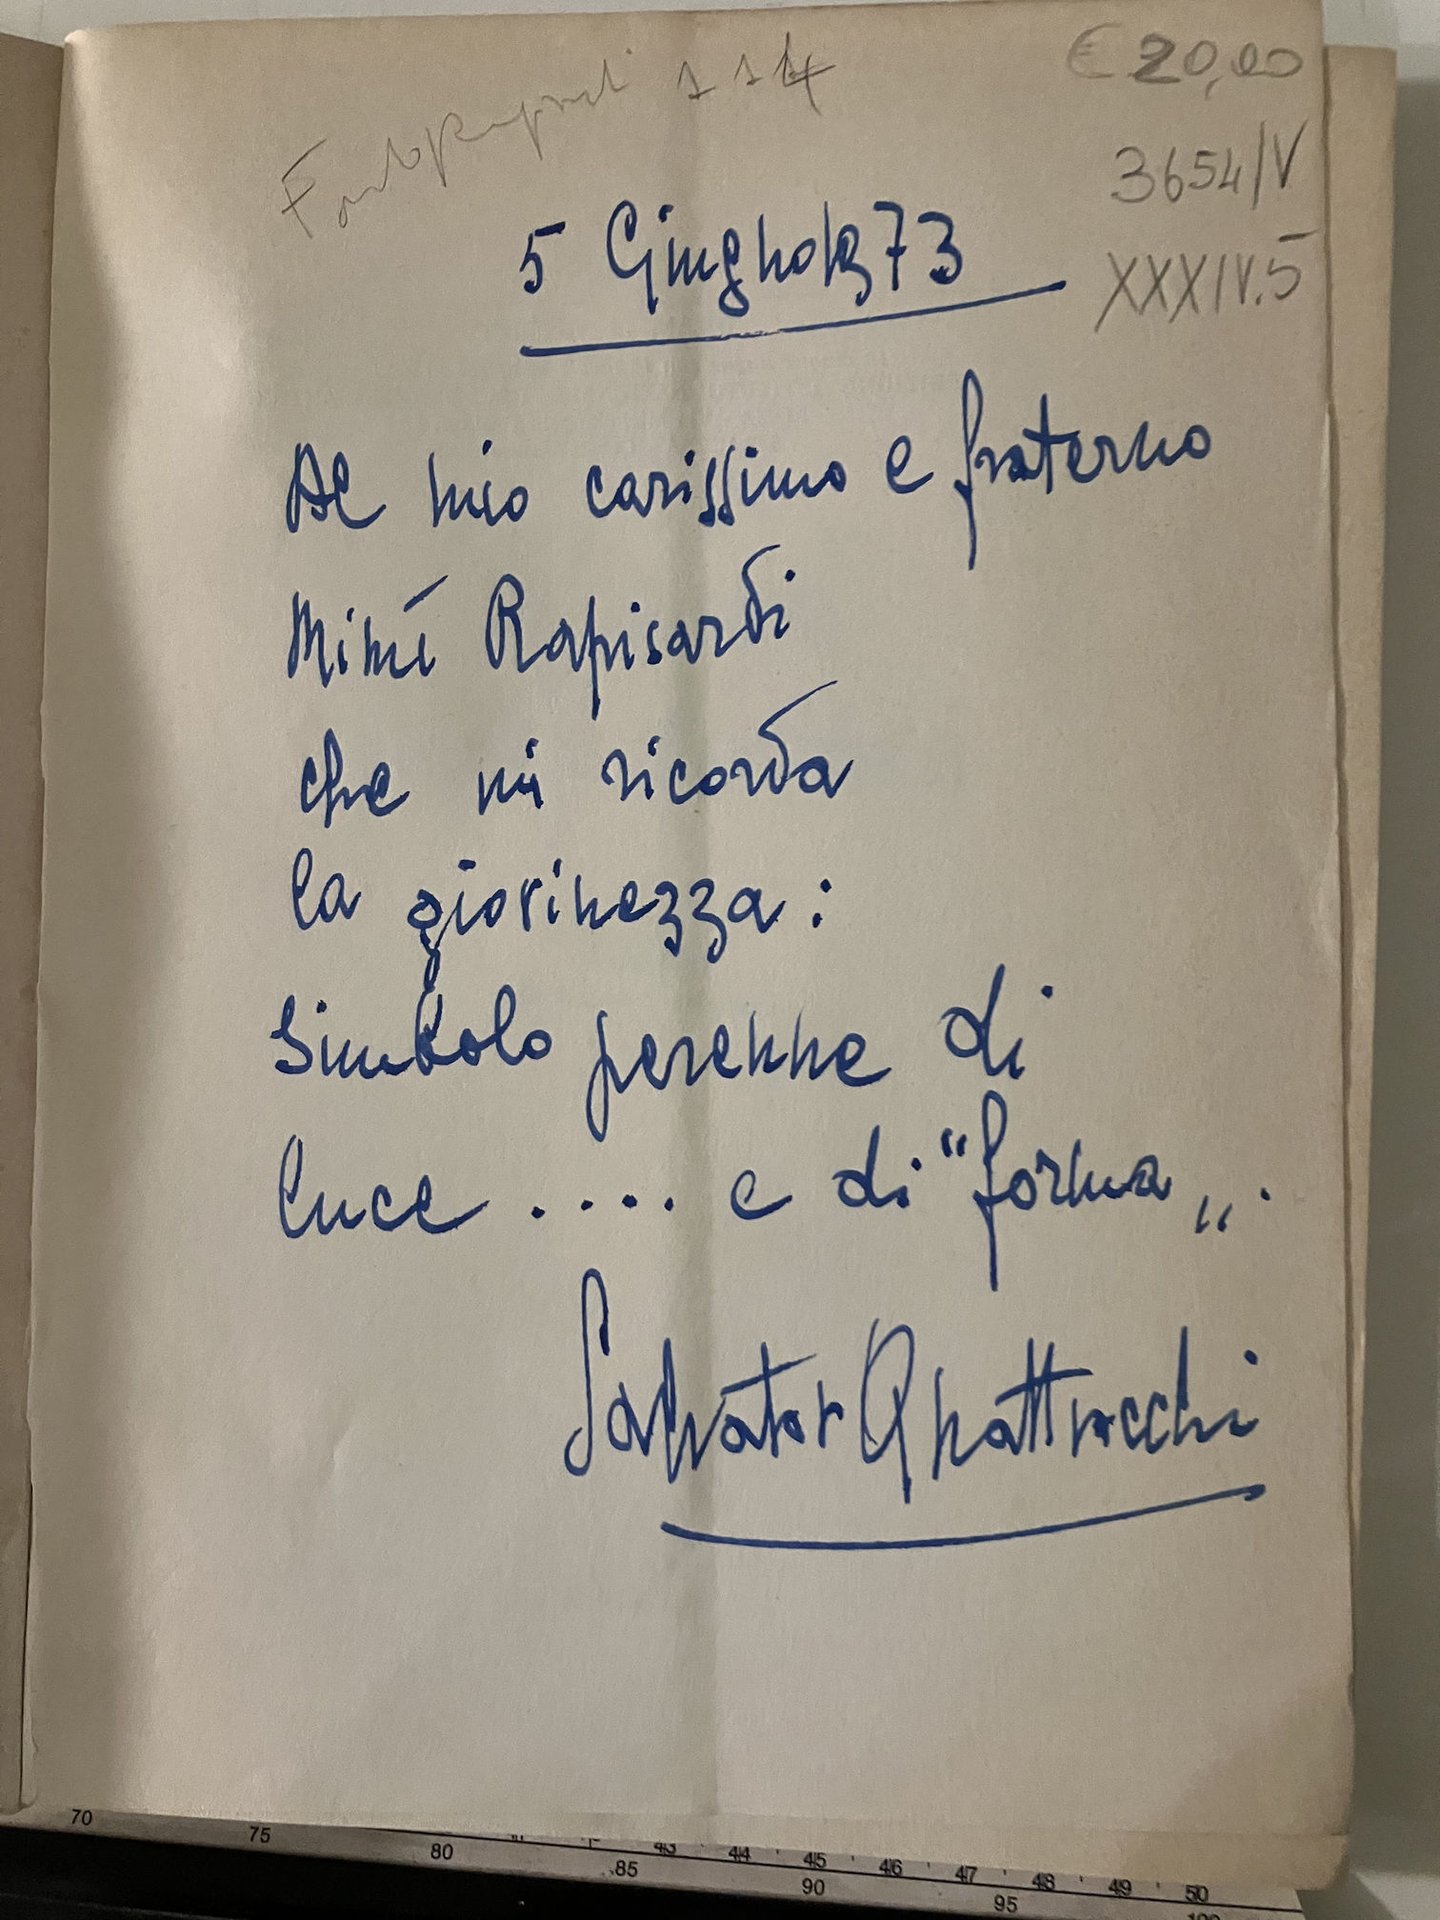 114
€ 20,00
3654/V
XXXIV.5
5 Giugno 1973
Al mio carissimo e fraterno
Mimí Rapisardi
che mi ricorda
la giovinezza:
Simbolo perenne di
luce .... e di "forma„.
Salvator Quattrocchi
70 75 80 85 90 95 100
43 44 45 46 47 48 49 50